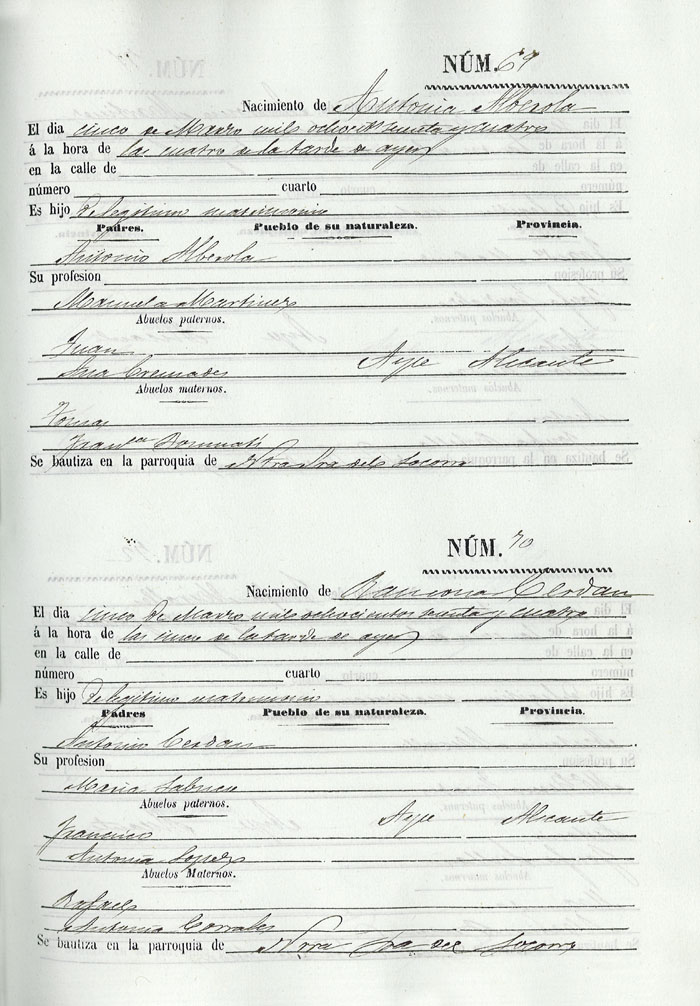 NÚM. 69
Nacimiento de Antonia Alberola
El dia cinco de Marzo mil ochocitos sesenta y cuatro
á la hora de las cuatro de la tarde de ayer
en la calle de
número cuarto
Es hijo de legitimo matrimonio
Padres. Pueblo de su naturaleza. Provincia.
Antonio Alberola
Su profesion
Manuela Martinez
Abuelos paternos.
Juan
Ana Cremades Aspe Alicante
Abuelos maternos.
Tomas
Fran.ca
Se bautiza en la parroquia de Ntra Sra del Socorro
NÚM. 70
Nacimiento de Ramona Cerdan
El dia cinco de Marzo mil ochocientos sesenta y cuatro
á la hora de las cinco de la tarde de ayer
en la calle de
número cuarto
Es hijo de legitimo matrimonio
Padres Pueblo de su naturaleza. Provincia.
Antonio Cerdan
Su profesion
Maria
Abuelos paternos.
Francisco Aspe Alicante
Antonia Lopez
Abuelos Maternos.
Rafael
Antonia Corrales
Se bautiza en la parroquia de Ntra Sra del Socorro